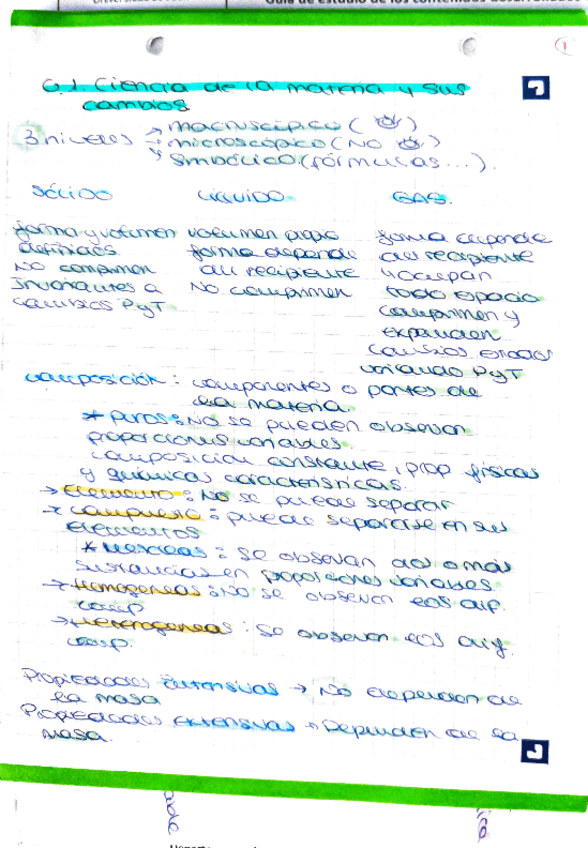 Guía de estudio de los contenidos desarrollados
1
G.1 Ciencia de la materia y sus
cambios
3 niveles → macroscópico ( )
→ microscópico (NO )
→ Simbólico (fórmulas...).
SÓLIDO LÍQUIDO GAS.
forma y volumen volumen propio forma depende
definidos forma depende del recipiente
No comprimen del recipiente y ocupan
Invariantes a No comprimen todo espacio
cambios PyT comprimen y
expanden
cambios
variando PyT
composición: componentes o partes de
la materia.
* puros: No se pueden observar
proporciones variables.
composición constante, prop físicas
y químicas características.
→ elemento: No se puede separar
→ compuesto: puede separarse en sus
elementos
* mezclas: se observan dos o más
sustancias en proporciones variables.
→ Homogéneas: No se observan los dif.
comp
→ Heterogéneas: Se observan los dif.
comp.
Propiedades → No dependen de
la masa
Propiedades extensivas → Dependen de la
masa.